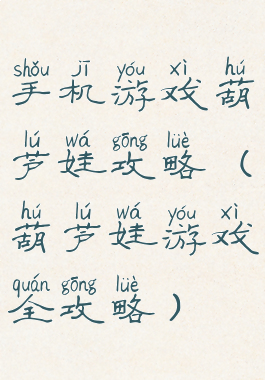 shǒu jī yóu xì hú
手机游戏葫
lú wá gōng lüè
芦娃攻略（
hú lú wá yóu xì
葫芦娃游戏
quán gōng lüè
全攻略）